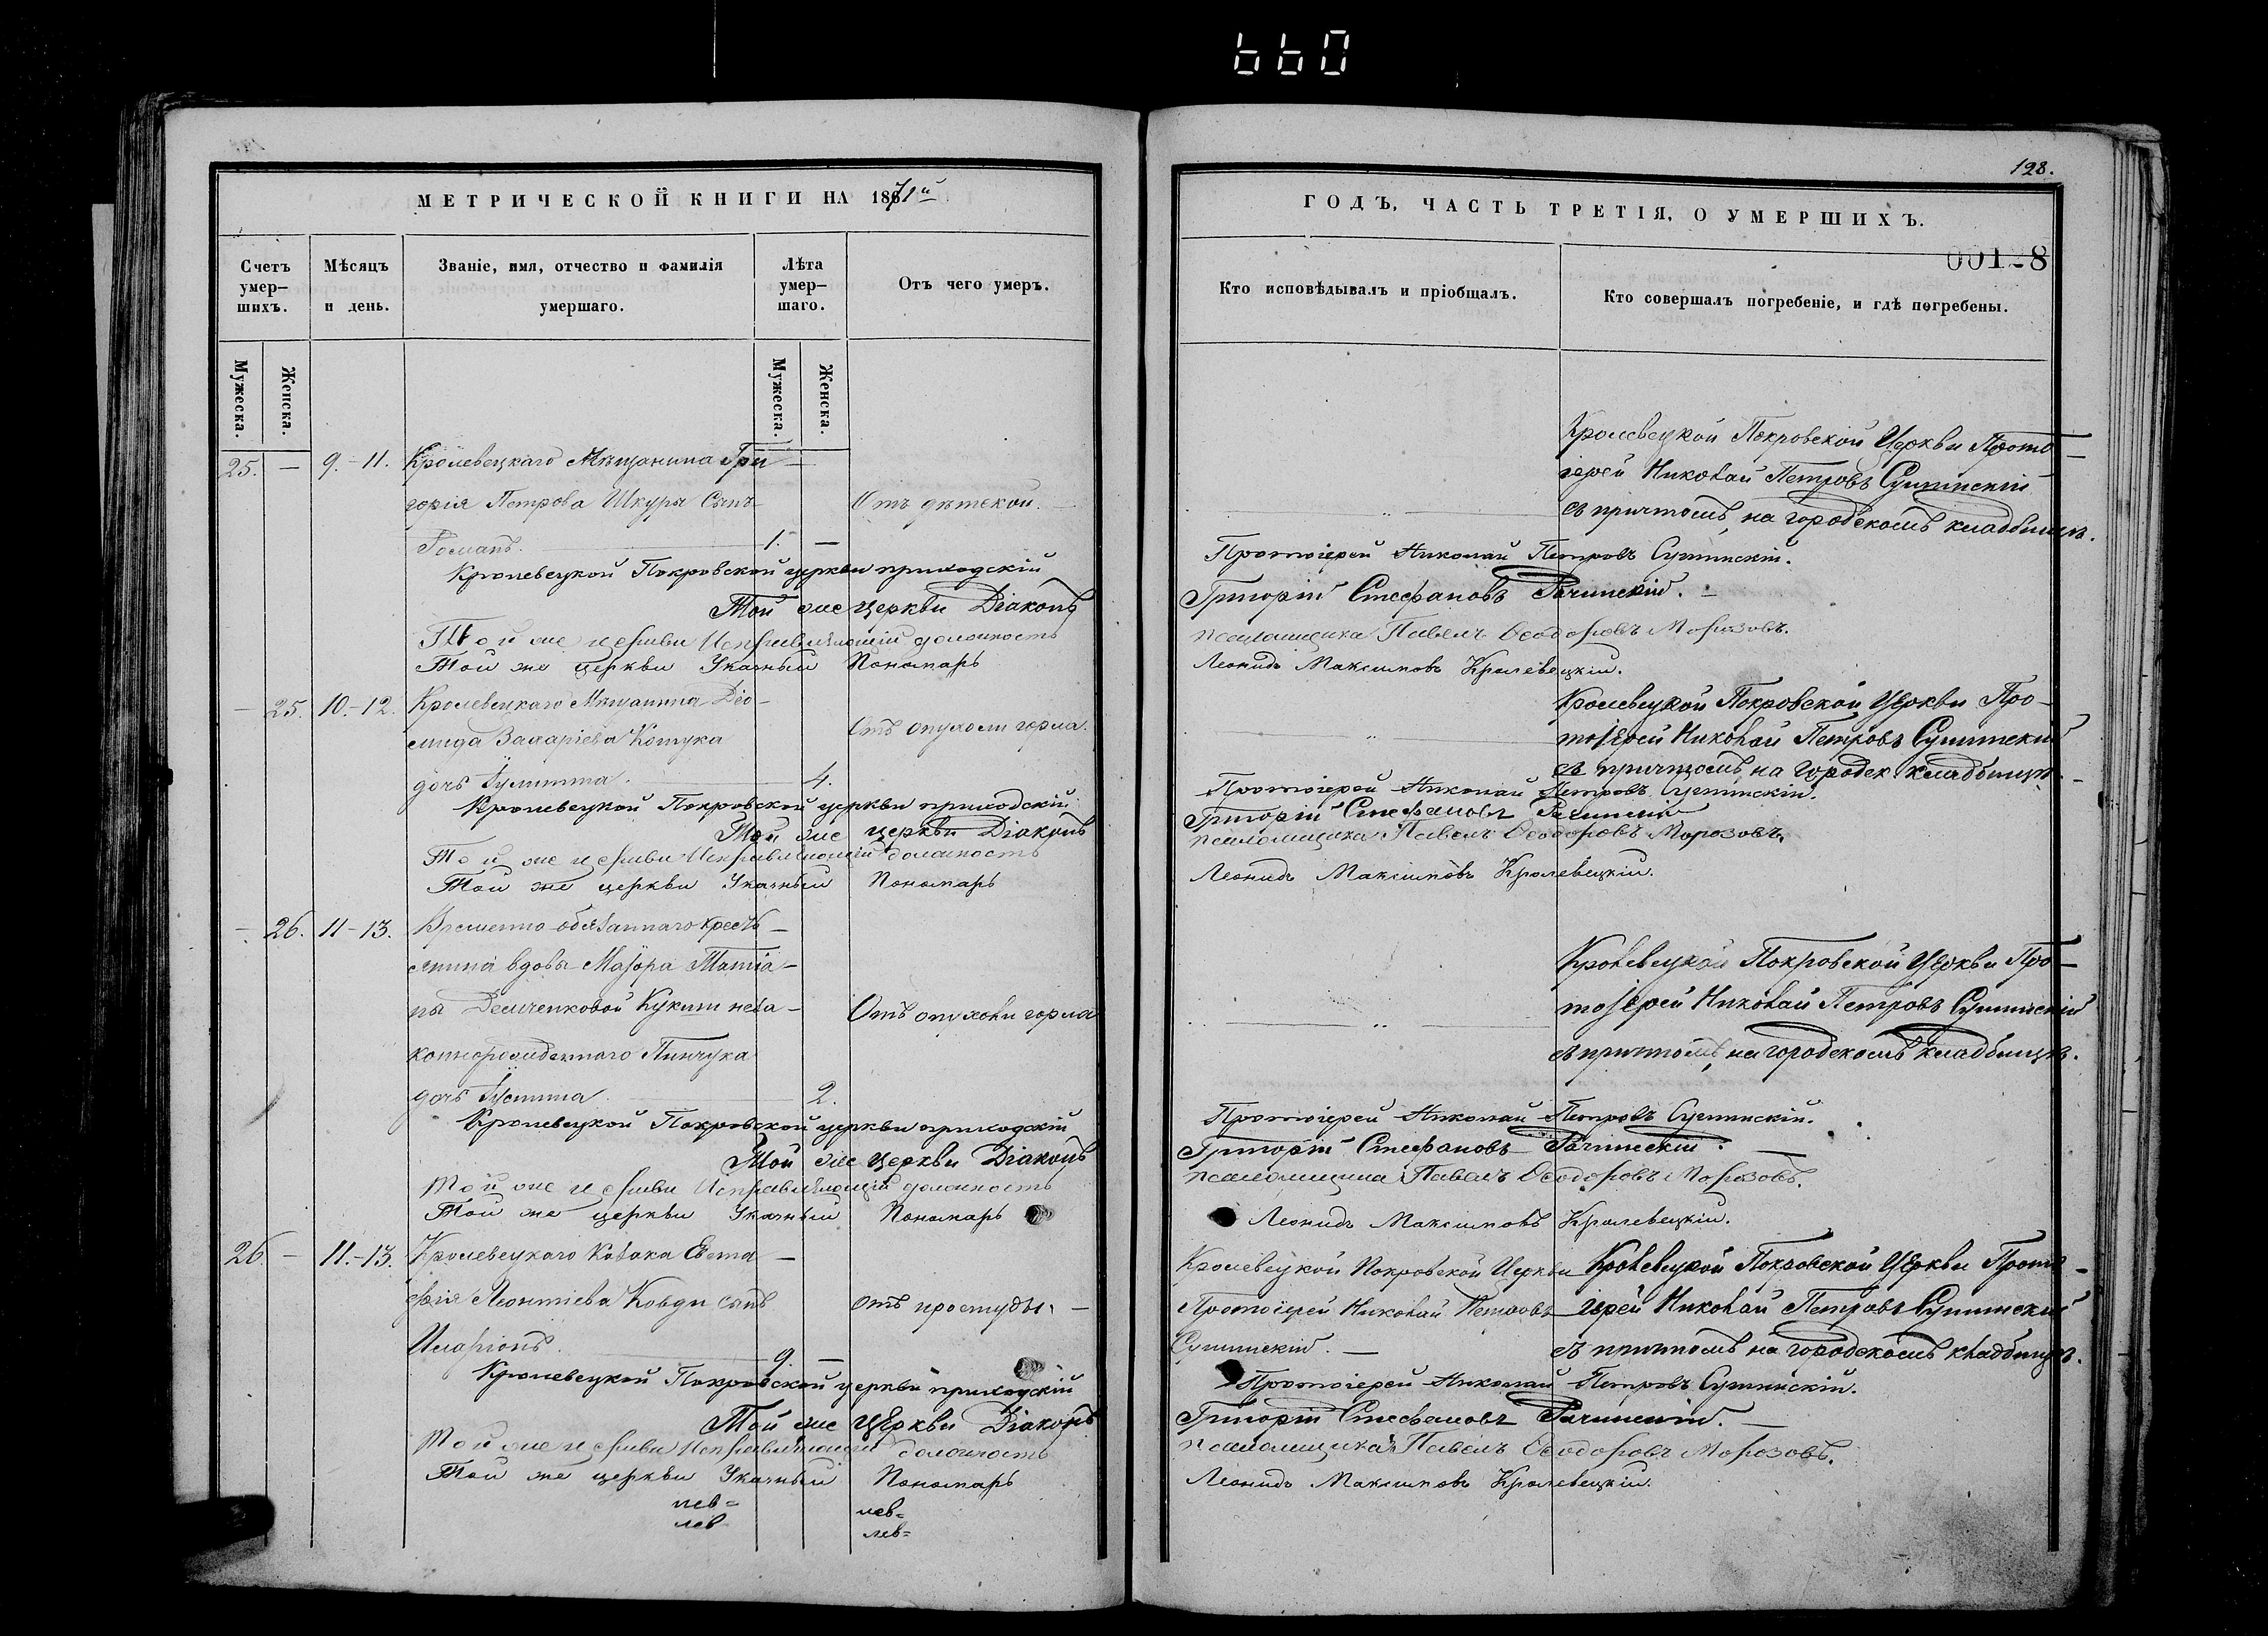 660
МЕТРИЧЕСКОЙ КНИГИ НА 1871й
Счетъ умер-шихъ.
Мужеска.
Женска.
Мѣсяцъ и день.
Званіе, имя, отчество и фамилія умершаго.
Лѣта умер-шаго.
Мужеска.
Женска.
Отъ чего умеръ.
25. — 9.-11. Кролевецкаго Мѣщанина Гри-
горія Петрова Шкуры Сынъ Отъ дѣтской.
Романъ. 1. —
Кролевецкой Покровской церкви приходскій
Той же Церкви Діаконъ
Той же церкви Исправляющій должность
Той же церкви Указный Пономарь
— 25. 10.-12. Кролевецкаго Мѣщанина Діо-
мида Захаріева Кошука Отъ опухоли горла.
дочь Іулитта. 4.
Кролевецкой Покровской церкви приходскій
Той же церкви Діаконъ
Той же церкви Исправляющій должность
Той же церкви Указный Пономарь
— 26. 11-13. Временно-обязаннаго крестья-
нина вдовы Маіора Татіа-
ны Демченковой Отъ опухоли горла
Пинчука
дочь Іустина. 2.
Кролевецкой Покровской церкви приходскій
Той же Церкви Діаконъ
Той же церкви Исправляющій должность
Той же церкви Указный Пономарь
26. — 11.-13. Кролевецкаго Козака Евста-
фія Леонтіева Ковди сынъ Отъ простуды.
Иларіонъ. 9. —
Кролевецкой Покровской церкви приходскій
Той же Церкви Діаконъ
Той же церкви Исправляющій должность
Той же церкви Указный Пономарь
лев= лев=
лев лев=
128.
ГОДЪ, ЧАСТЬ ТРЕТІЯ, О УМЕРШИХЪ.
00128
Кто исповѣдывалъ и пріобщалъ.
Кто совершалъ погребеніе, и гдѣ погребены.
Кролевецкой Покровской Церкви Прото-
іерей Николай Петровъ
съ причтомъ, на городскомъ кладбищѣ.
Протоіерей Николай Петровъ
Григорій Стефановъ Рачинскій.
псаломщика Павелъ Ѳеодоровъ Морозовъ.
Леонидъ Максимовъ Кролевецкій.
Кролевецкой Покровской Церкви Про-
тоіерей Николай Петровъ
съ причтомъ, на городск. кладбищѣ.
Протоіерей Николай Петровъ
Григорій Стефановъ Рачинскій
псаломщика Павелъ Ѳеодоровъ Морозовъ.
Леонидъ Максимовъ Кролевецкій.
Кролевецкой Покровской Церкви Про-
тоіерей Николай Петровъ
съ причтомъ, на городскомъ кладбищѣ.
Протоіерей Николай Петровъ
Григорій Стефановъ Рачинскій.
псаломщика Павелъ Ѳеодоровъ Морозовъ.
Леонидъ Максимовъ Кролевецкій.
Кролевецкой Покровской Церкви Кролевецкой Покровской Церкви Прото-
Протоіерей Николай Петровъ іерей Николай Петровъ
съ причтомъ на городскомъ кладбищѣ.
Протоіерей Николай Петровъ
Григорій Стефановъ Рачинскій.
псаломщика Павелъ Ѳеодоровъ Морозовъ.
Леонидъ Максимовъ Кролевецкій.